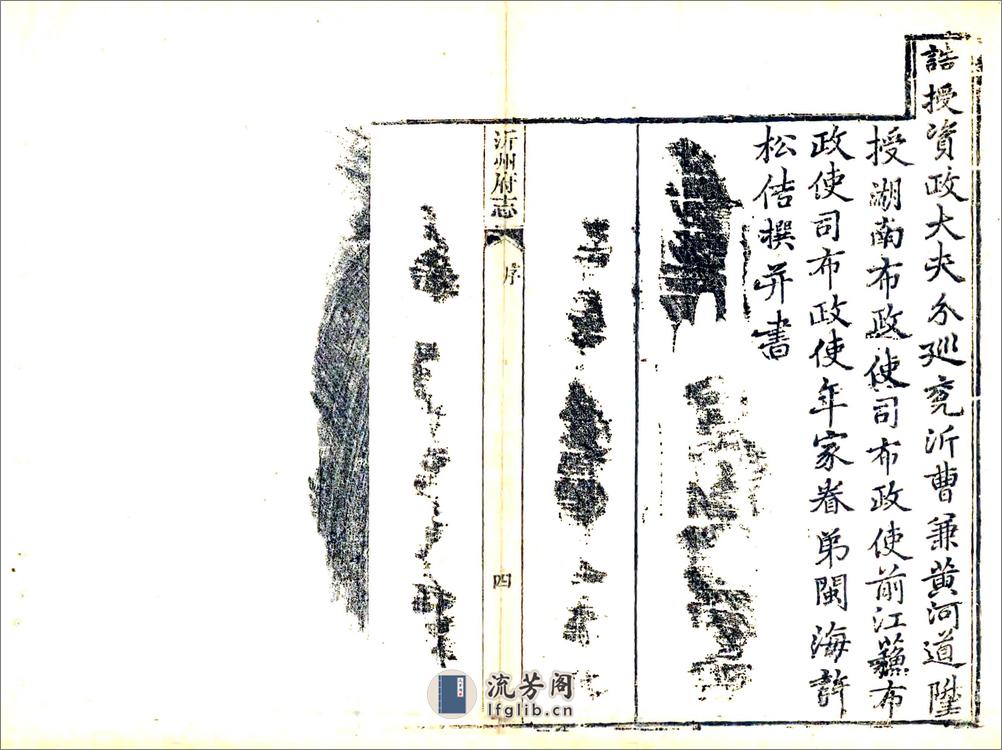 誥授資政大夫分巡兖沂曹兼黄河道陞
授湖南布政使司布政使前江蘓布
政使司布政使年家眷弟閩海許
松佶撰并書
沂州府志
序
四
流芳阁
lfglib.cn